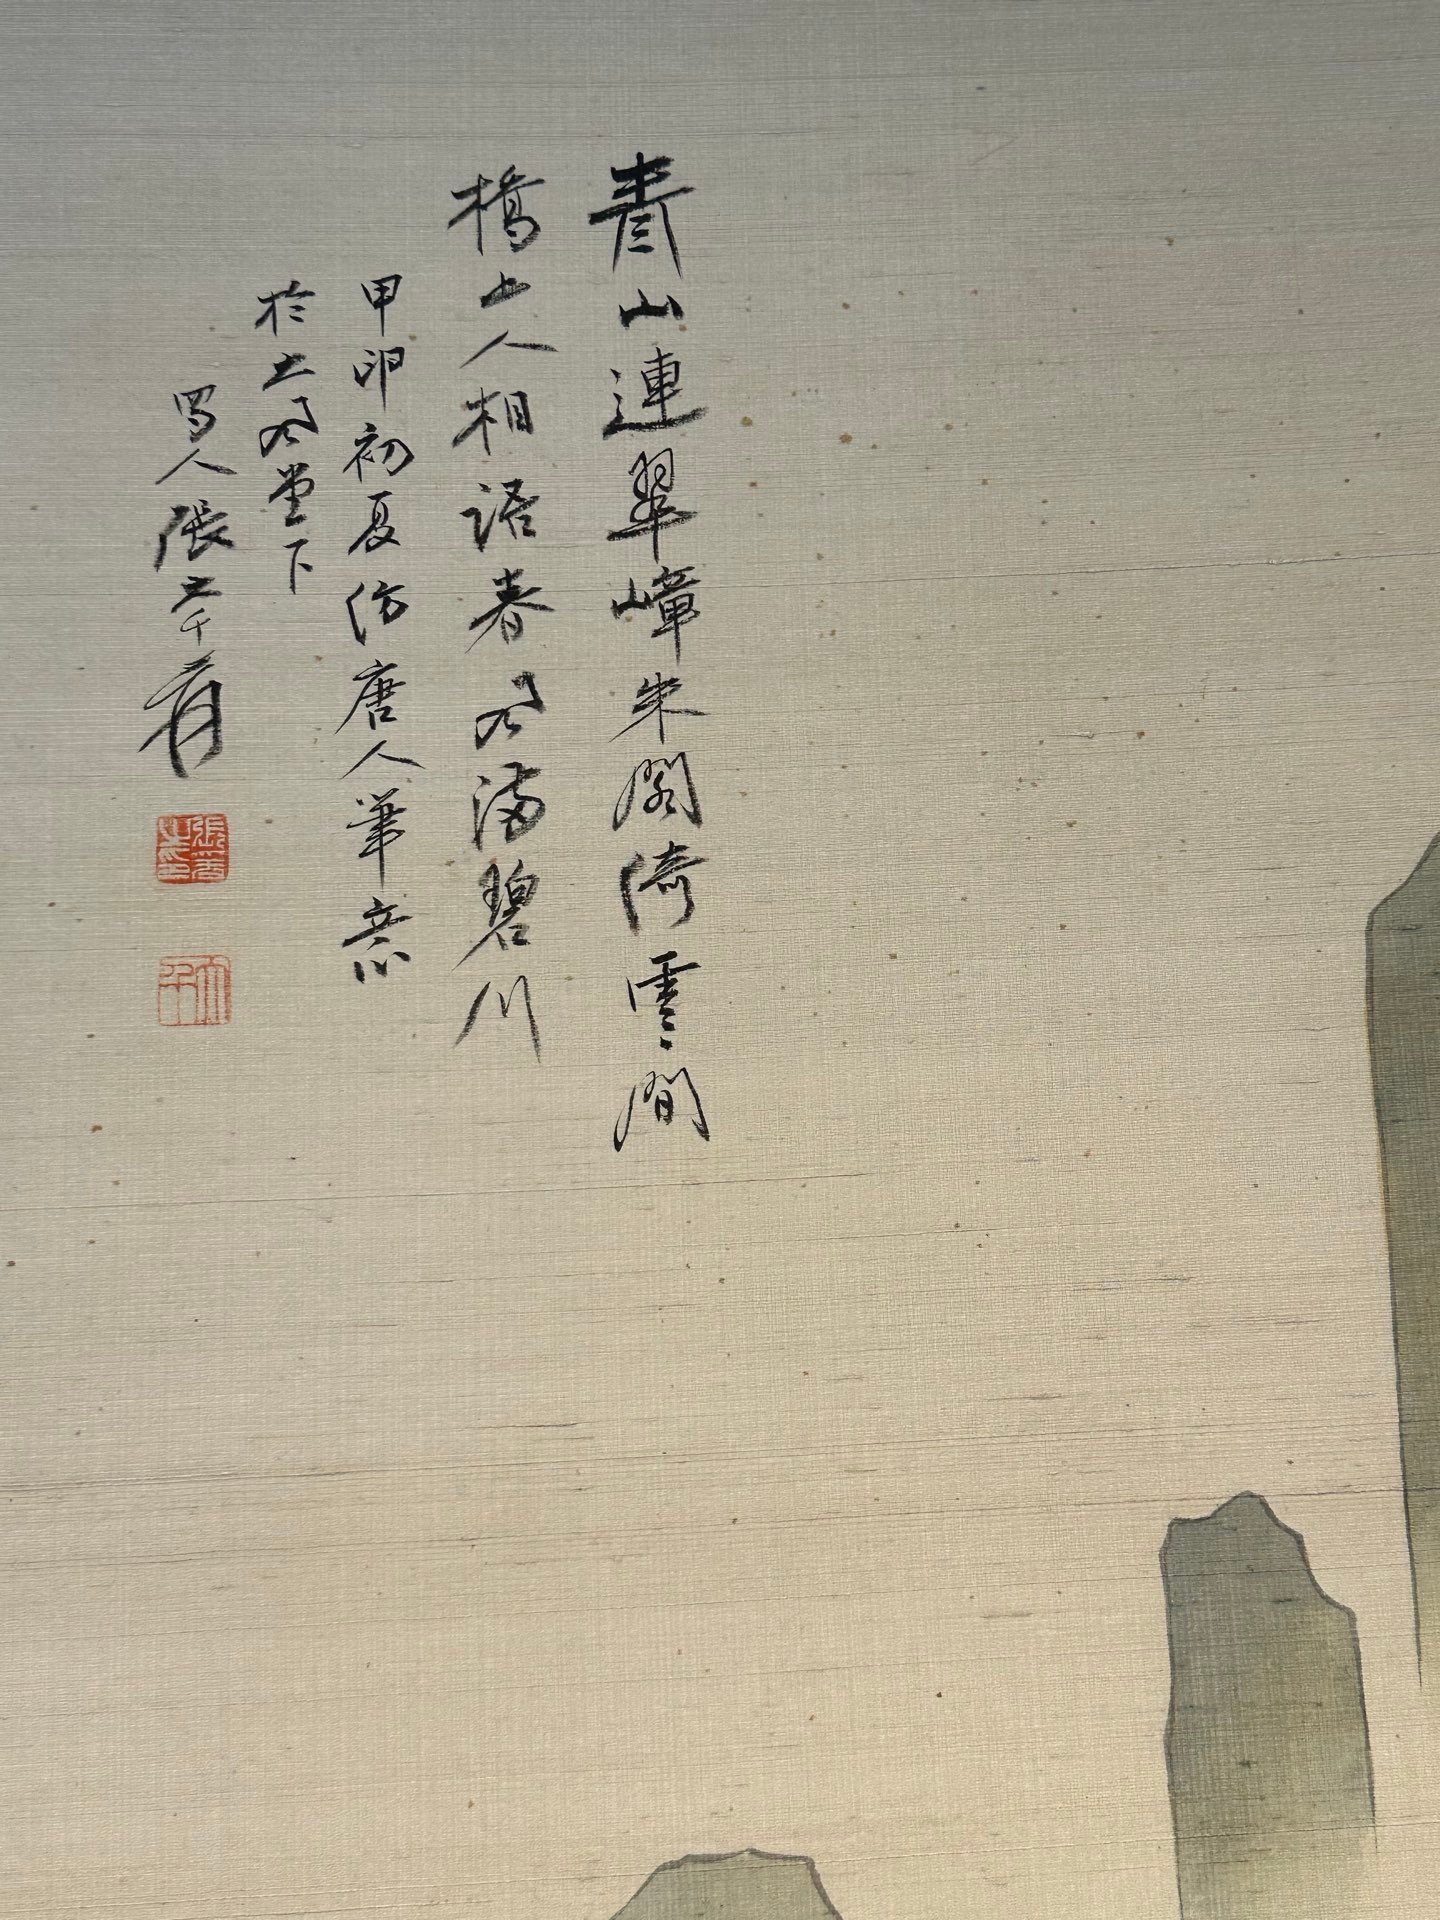 青山連翠嶂朱閣倚雲間
橋上人相語春風滿碧川
甲卯初夏仿唐人筆意
於大風堂下
蜀人張大千爰
張爰
大千